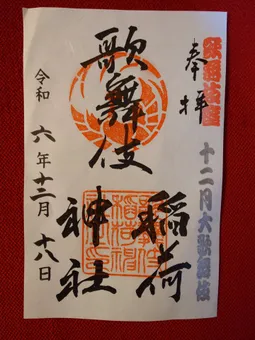 歌舞伎座
奉拝
十二月大歌舞伎
歌舞伎
稲荷
神社
令和六年十二月十八日